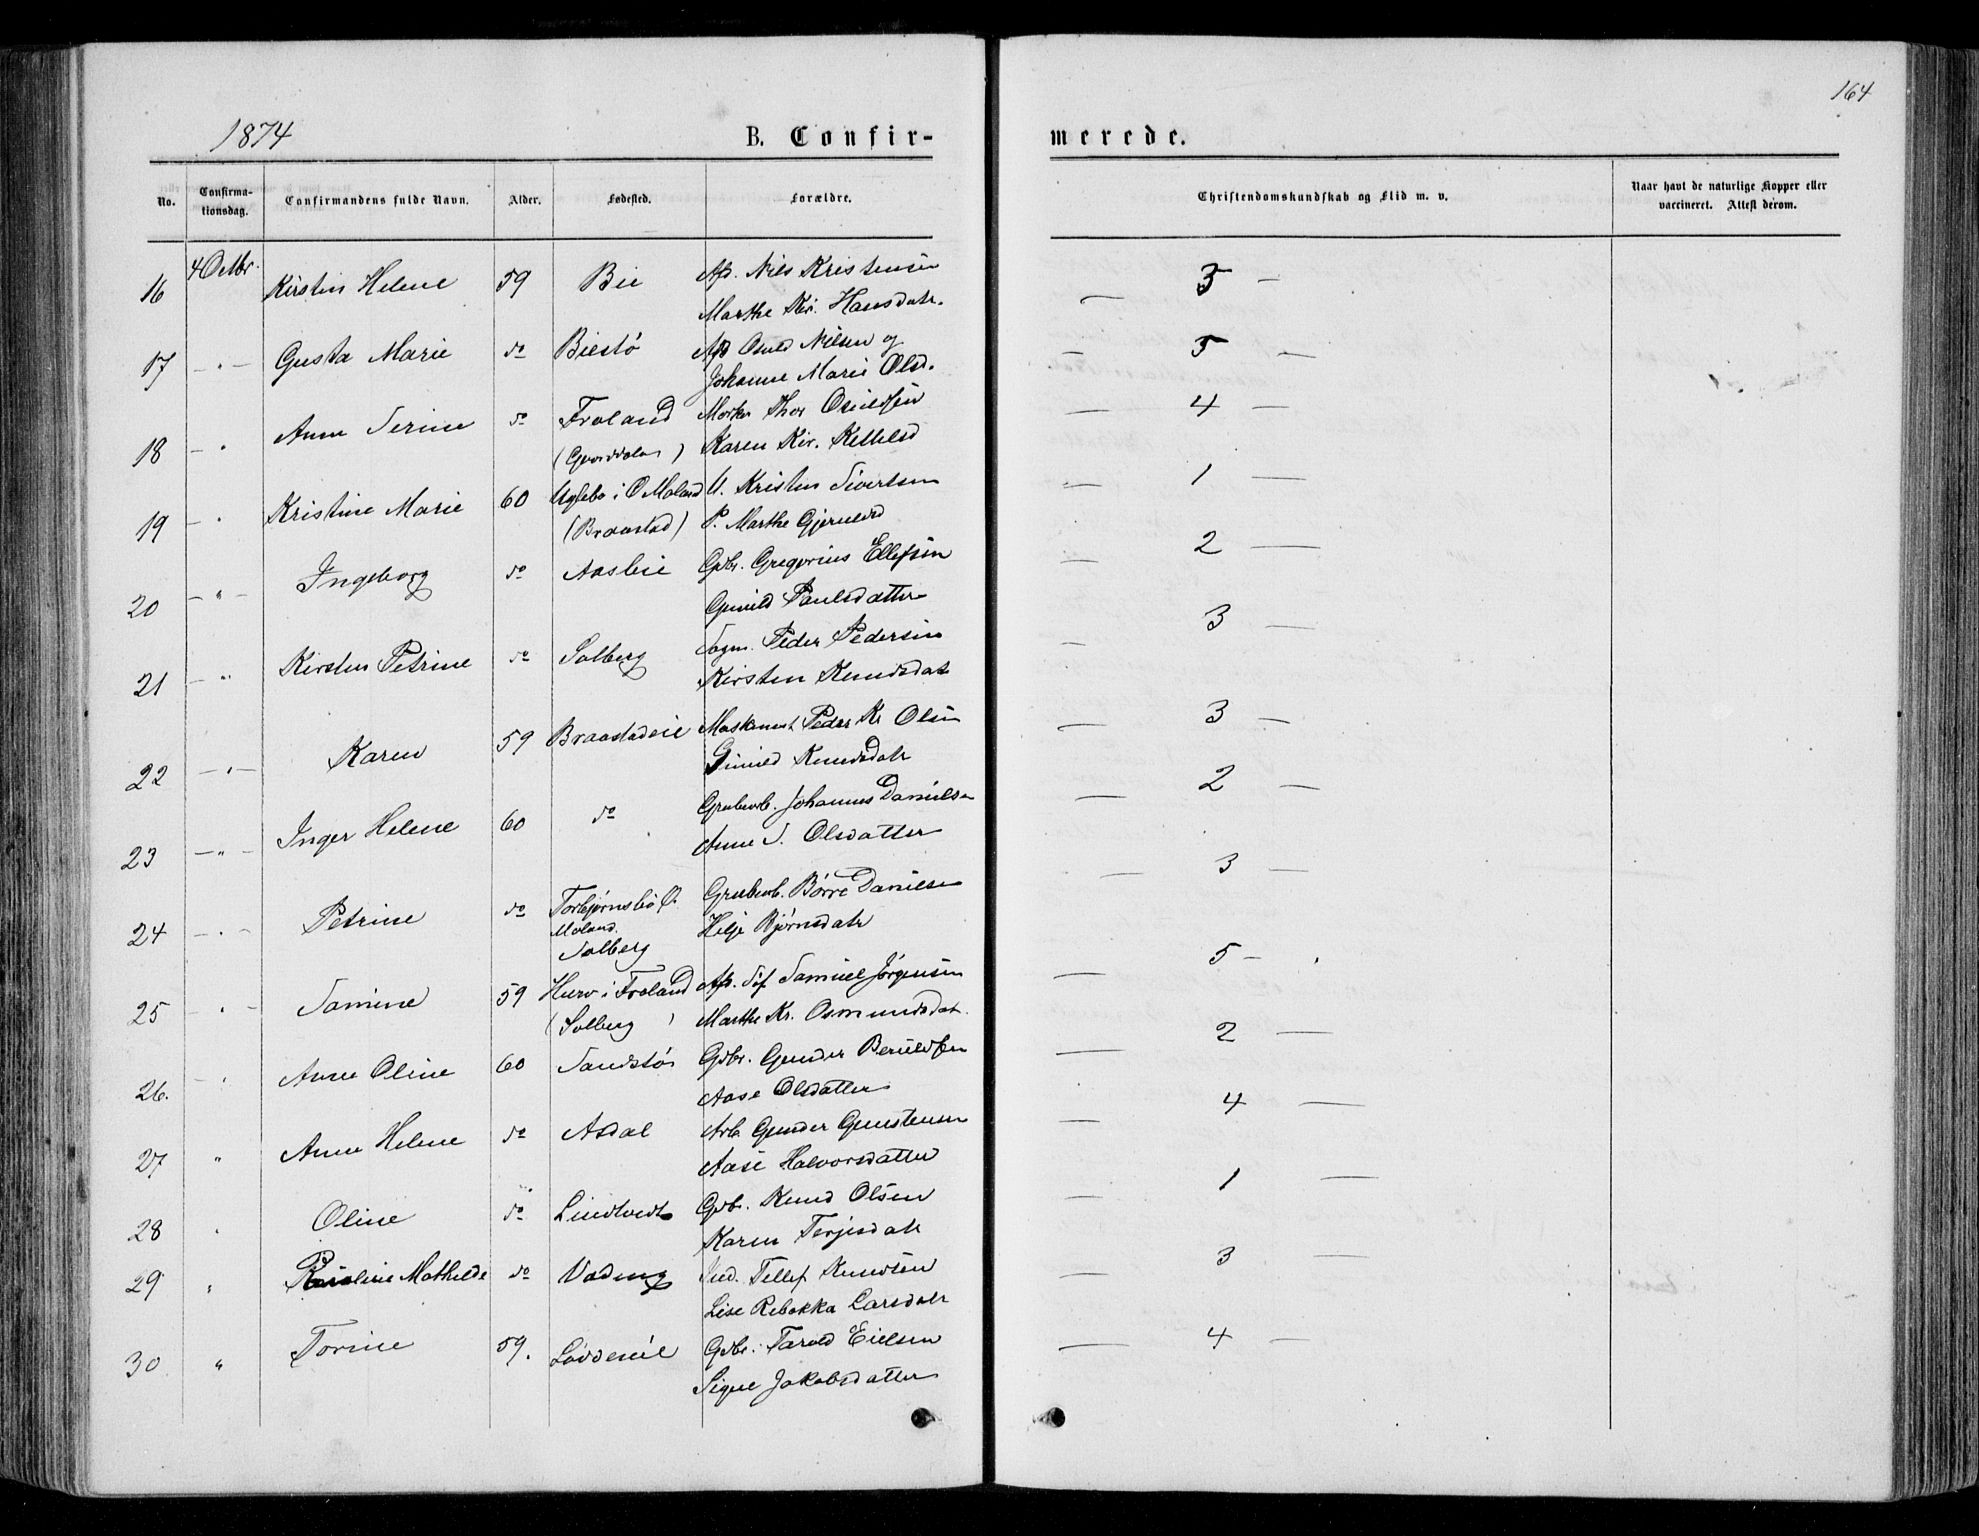 164
1874
B. Confir-
merede.
No.
Confirma-
tionsdag.
Confirmandens fulde Navn.
Alder.
Fødested.
Forældre.
Christendomskundskab og Flid m. v.
Naar havt de naturlige Kopper eller
vaccineret. Attest derom.
16 4 Octbr. Kirstin Helene 59 Bie Afd. Nils Kristensen — 3 —
Marthe Kir. Hansdatr.
17 — " — Gusta Marie do Biestø Afd Osuld Nilsen og — 3 —
Johanne Marie Olsd.
18 — " Anne Serine do Froland Thor Osuldsen — 4 —
Karen Kir. Kettelsd
19 — " Kristine Marie 60 Uglebo i Ø Moland U. Kristen Sivertsen — 1 —
(Braastad) P. Marthe
20 — " — Ingeborg do Aasbie Gdbr. Gregorius Ellefsen — 2 —
Gunild Paulsdatter
21 — " Kirsten Petrine do Solberg Sagm. Peder Pedersen — 3 —
Kirsten Knudsdatr
22 — " — Karen 59 Braastadeie Peder Kr Olsen — 3 —
Gunild Knudsdatr
23 — " — Inger Helene 60 do Grubearb. Johannes Danielsen — 2 —
Anne S. Olsdatter
24 — " — Petrine do Torbjørnsbø Ø. Grubearb. Børre Danielsen — 3 —
Moland. Hilje Bjørnsdatr
Solberg
25 — " — Samine 59 i Froland Afd. Samuel Jørgensen — 5 —
(Solberg) Marthe Kr. Osmundsdat.
26. — " Anne Oline 60 Sandstø Gdbr. Gunder Beruldsen — 2 —
Aase Olsdatter
27 " Anne Helene do Asdal Arb Gunder Gunstensen — 4 —
Aase Halvorsdatter
28 " Oline do Lindtvedt Gdbr. Knud Olsen — 1 —
Karen Terjesdatr
29 " Mathilde do Vading Tellef Knudsen — 3 —
Lise Rebekka Larsdatr
30 " Torine 59. Løddesøl Gdbr. Tarald Eielsen — 4 —
Signe Jakobsdatter